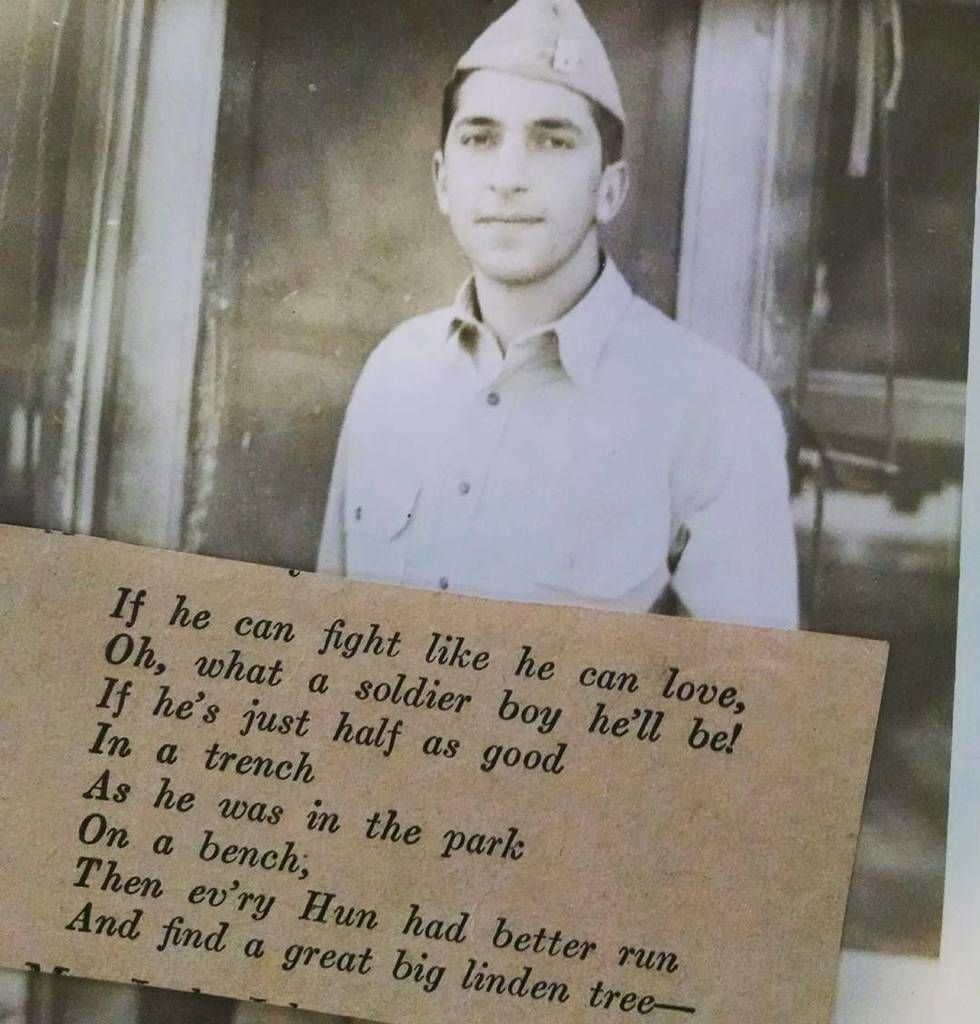 If he can fight like he can love,
Oh, what a soldier boy he'll be!
If he's just half as good
In a trench
As he was in the park
On a bench,
Then ev'ry Hun had better run
And find a great big linden tree—